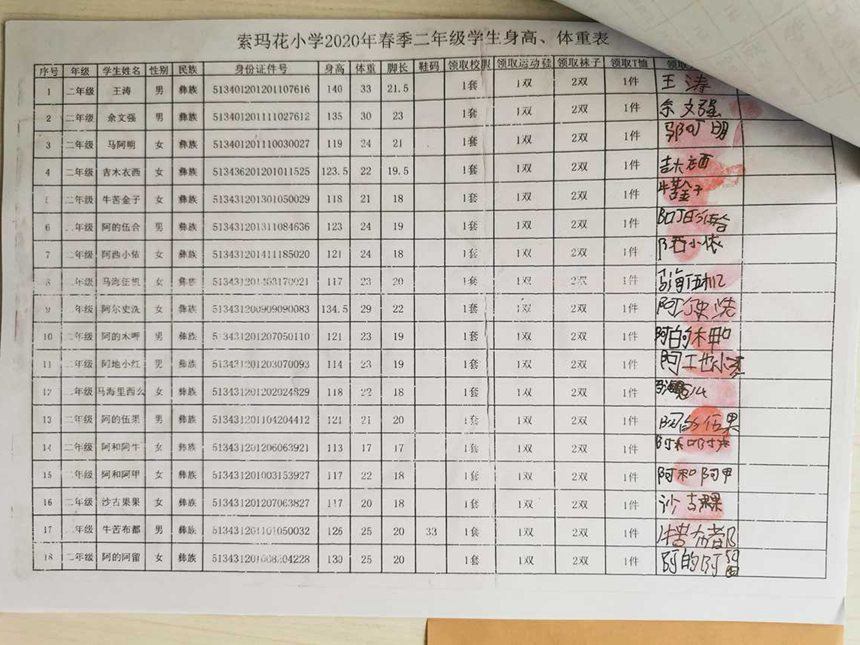 索玛花小学2020年春季二年级学生身高、体重表
序号 年级 学生姓名 性别 民族 身份证件号 身高 体重 脚长 鞋码 领取校服 领取运动鞋 领取袜子 领取T恤
1 二年级 王涛 男 彝族 513401201201107616 140 33 21.5 1套 1双 2双 1件 王涛
2 二年级 余文强 男 彝族 513401201111027612 135 30 23 1套 1双 2双 1件 余文强
3 二年级 马阿明 女 彝族 513401201110030027 119 24 21 1套 1双 2双 1件
4 二年级 吉木衣西 女 彝族 513436201201011525 123.5 22 19.5 1套 1双 2双 1件 吉木衣西
二年级 牛苦金子 女 彝族 513431201301050029 118 21 18 1套 1双 2双 1件 牛苦金子
6 二年级 阿的伍合 男 彝族 513431201311084636 123 24 19 1套 1双 2双 1件
7 二年级 阿西小依 女 彝族 513431201411185020 121 24 18 1套 1双 2双 1件
二年级 女 彝族 117 23 20 1套 1双 2双 1件
9 年级 阿尔史洗 女 彝族 513431200909090083 134.5 29 22 1套 1双 2双 1件 阿尔史洗
10 二年级 阿的木呷 男 彝族 513431201207050110 121 23 19 1套 1双 2双 1件 阿的木呷
11 二年级 阿地小红 男 彝族 513431201203070093 114 23 19 1套 1双 2双 1件
12 二年级 马海里西么 女 彝族 513431201202024829 118 22 18 1套 1双 2双 1件
13 二年级 阿的伍果 男 彝族 513431201104204412 121 21 20 1套 1双 2双 1件 阿的伍果
14 二年级 阿和阿牛 女 彝族 513431201206063921 113 17 17 1套 1双 2双 1件
15 二年级 阿和阿甲 女 彝族 513431201003153927 117 22 18 1套 1双 2双 1件 阿和阿甲
16 二年级 沙古果果 女 彝族 513431201207063827 117 20 18 1套 1双 2双 1件
17 二年级 牛苦布都 男 彝族 126 25 20 33 1套 1双 2双 1件 牛苦布都
18 二年级 阿的阿留 女 彝族 130 25 20 1套 1双 2双 1件 阿的阿留